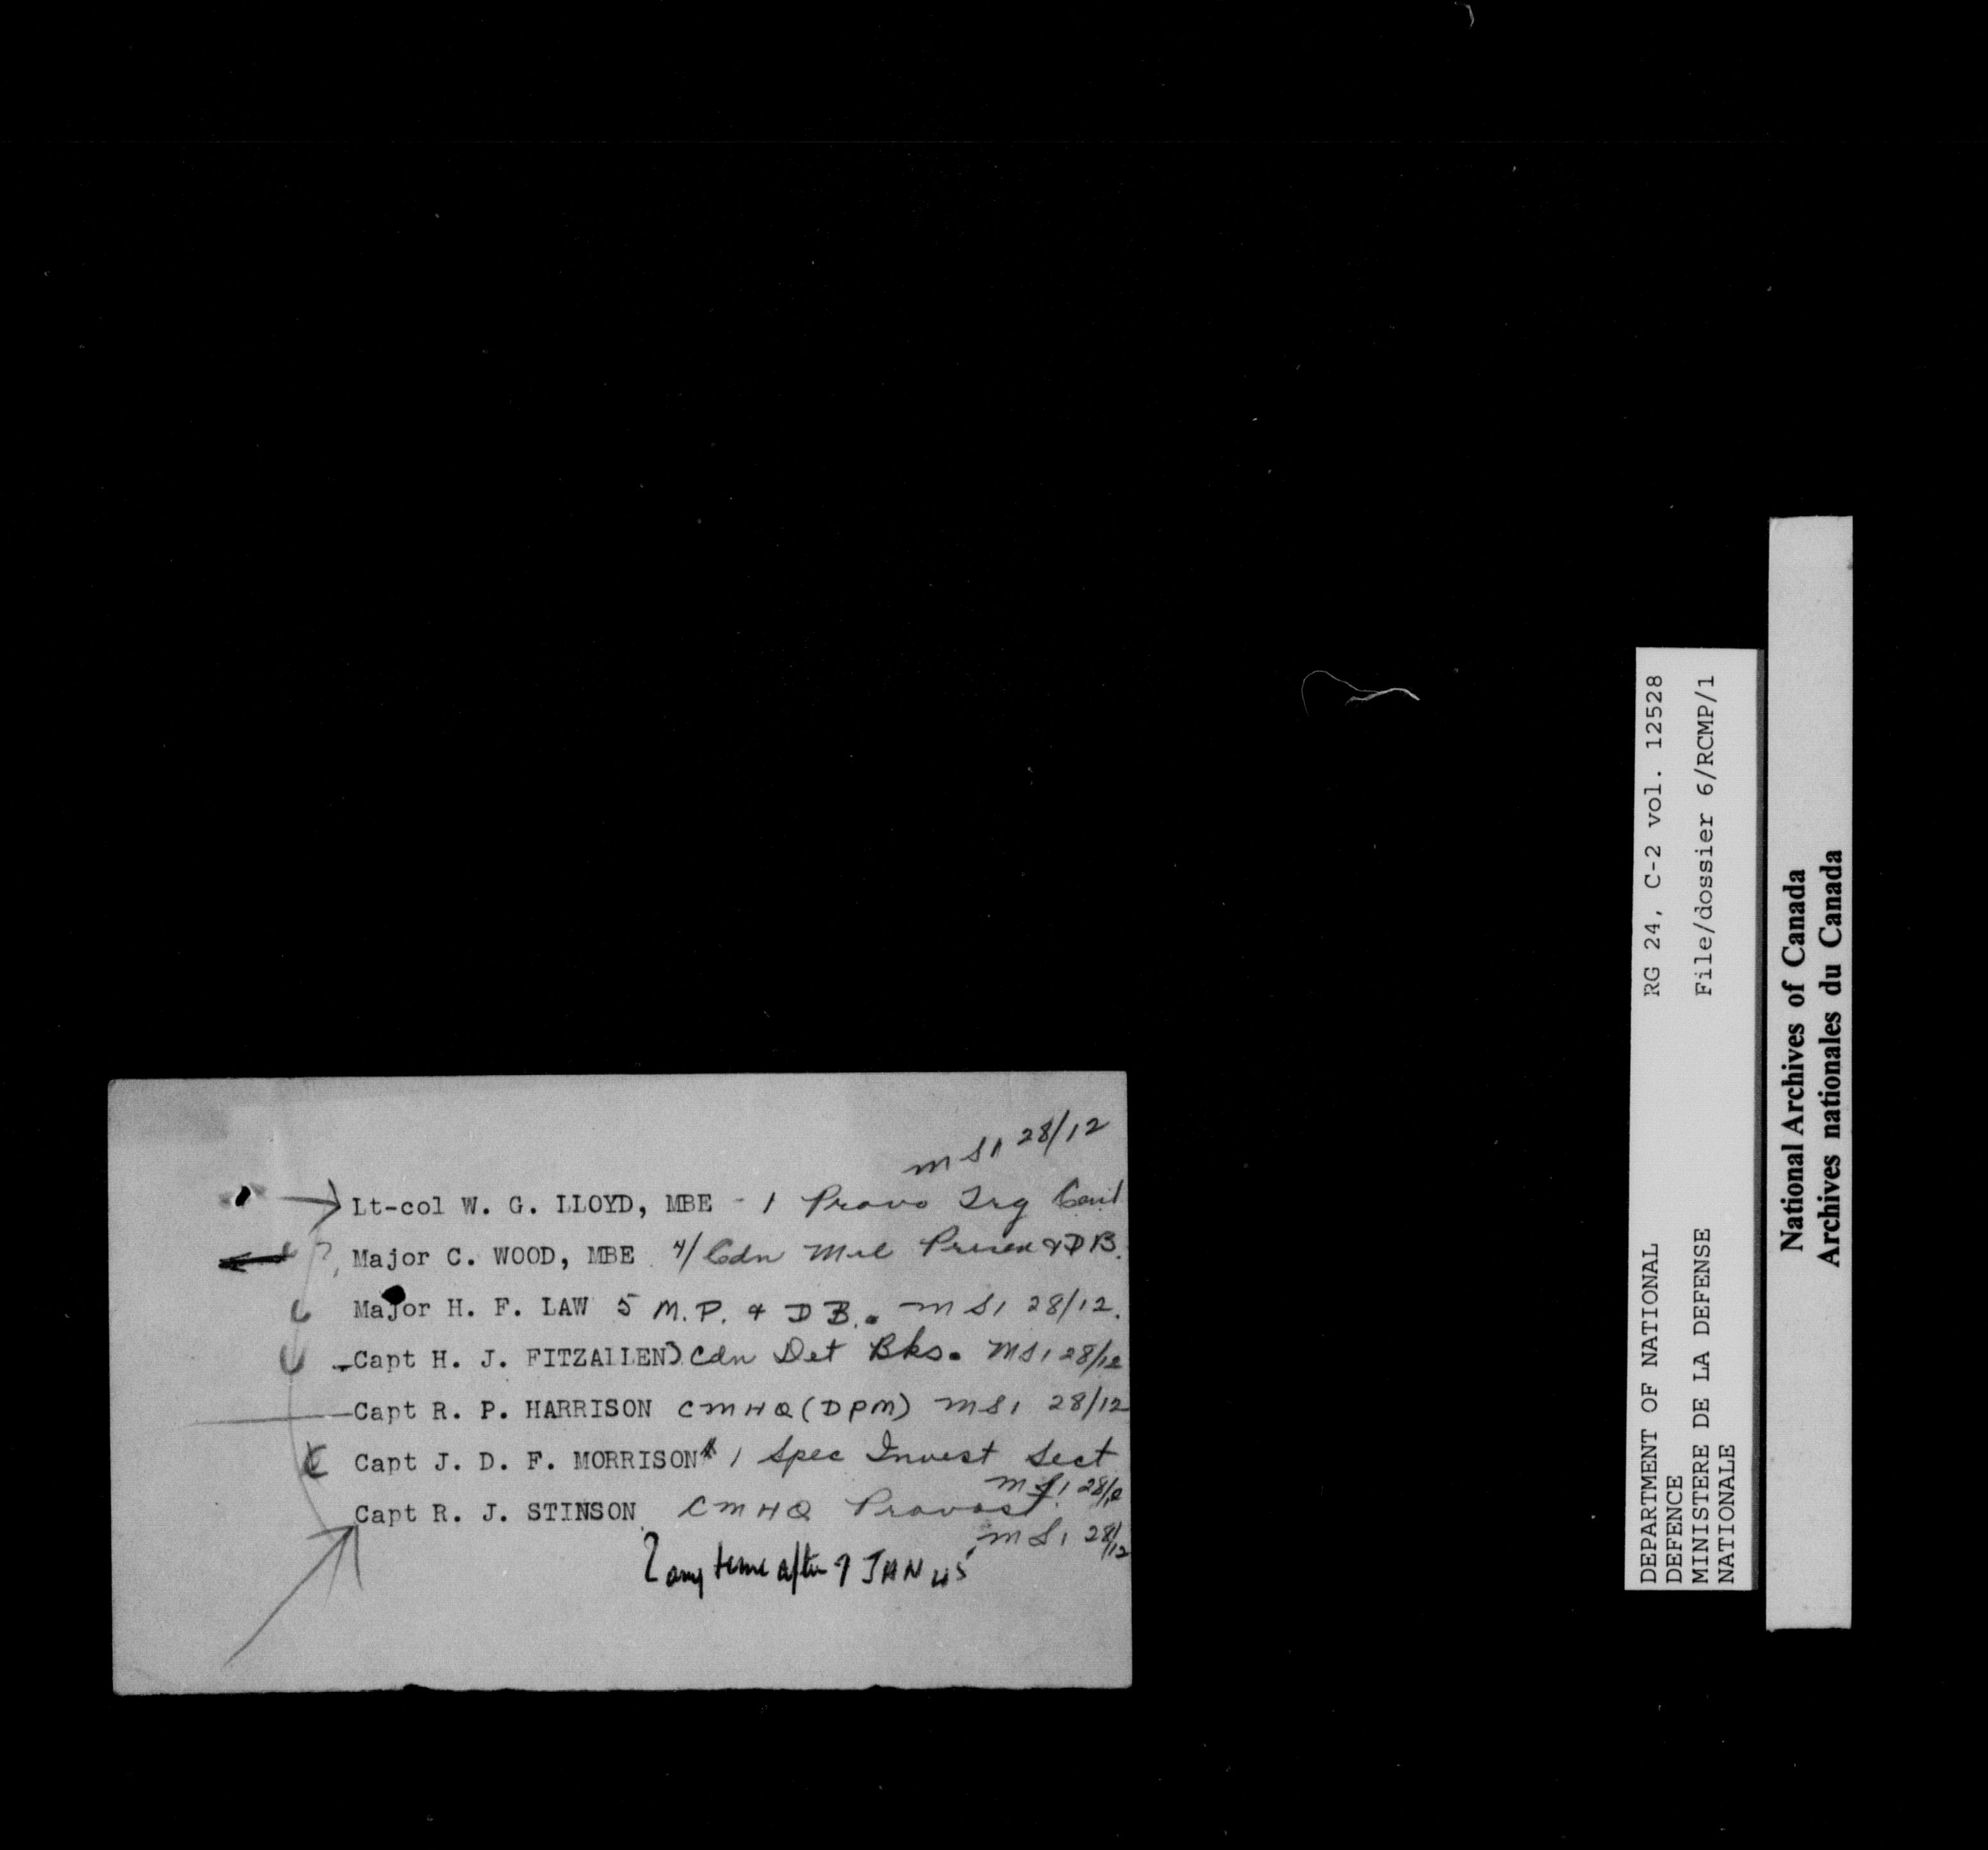 M S 1 28/12
Lt-col W. G. LLOYD, MBE - 1 Provo Trg
Major C. WOOD, MBE 4/ Cdn Mil Prison & D B.
Major H. F. LAW 5 M.P. & D B. M S 1 28/12.
Capt H. J. FITZALLEN) Cdn Det Bks. M S 1 28/12
Capt R. P. HARRISON CMHQ (DPM) M S 1 28/12
Capt J. D. F. MORRISON 1 Spec Invest Sect
M S 1 28/12
Capt R. J. STINSON CMHQ Provost
M S 1 28/12
any time after 7 JAN 45
DEPARTMENT OF NATIONAL RG 24, C-2 vol. 12528
DEFENCE
MINISTERE DE LA DEFENSE File/dossier 6/RCMP/1
NATIONALE
National Archives of Canada
Archives nationales du Canada